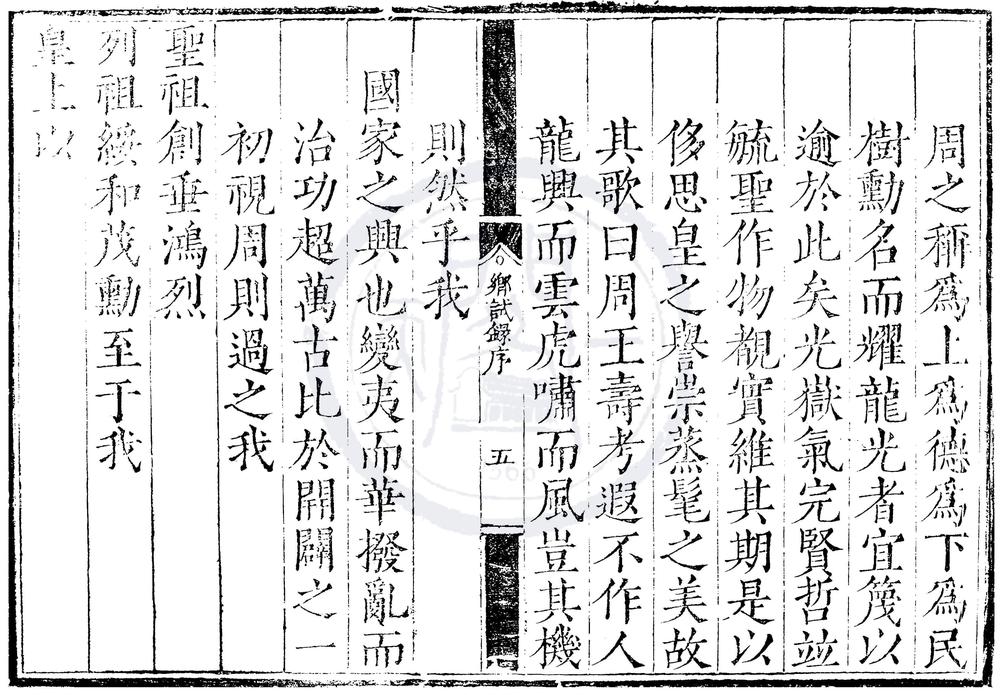 周之稱爲上爲德爲下爲民
樹勳名而耀龍光者宜篾以
逾於此矣光嶽氣完賢哲竝
毓聖作物覩實維其期是以
侈思皇之譽崇蒸髦之美故
其歌曰周王壽考遐不作人
龍興而雲虎嘯而風豈其機
鄉試録序
五
則然乎我
國家之興也變夷而華撥亂而
治功超萬古比於開闢之一
初視周則過之我
聖祖創垂鴻烈
列祖綏和茂勳至于我
皇上以